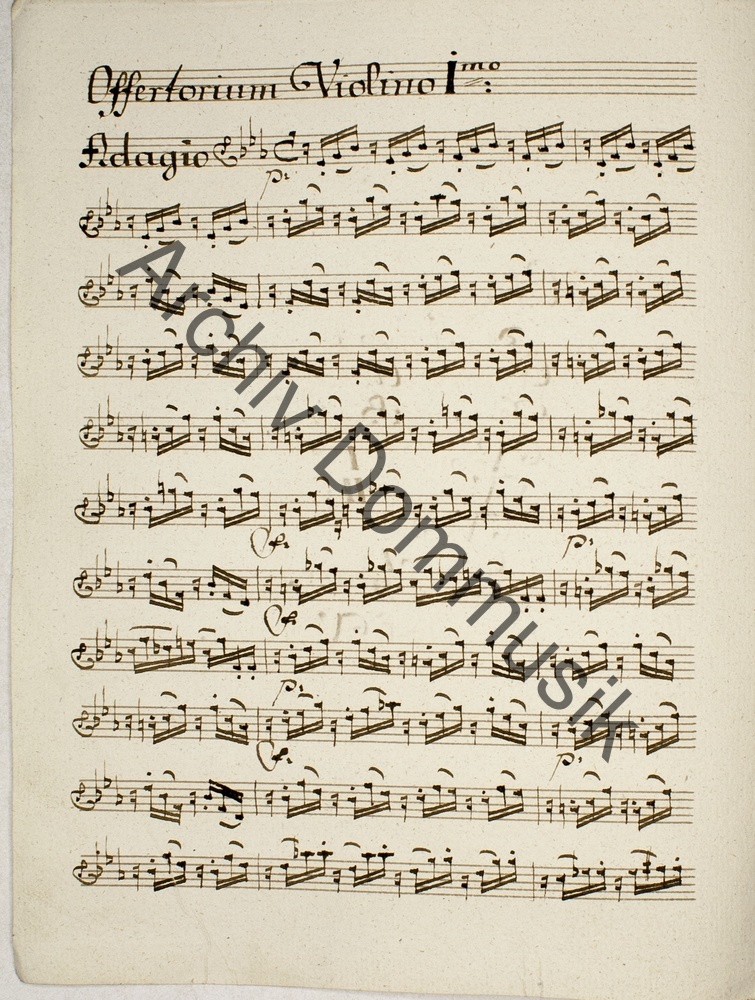 Offertorium Violino Imo:
Adagio
p:
f:
p:
f:
p:
f:
p:
Archiv Dommusik